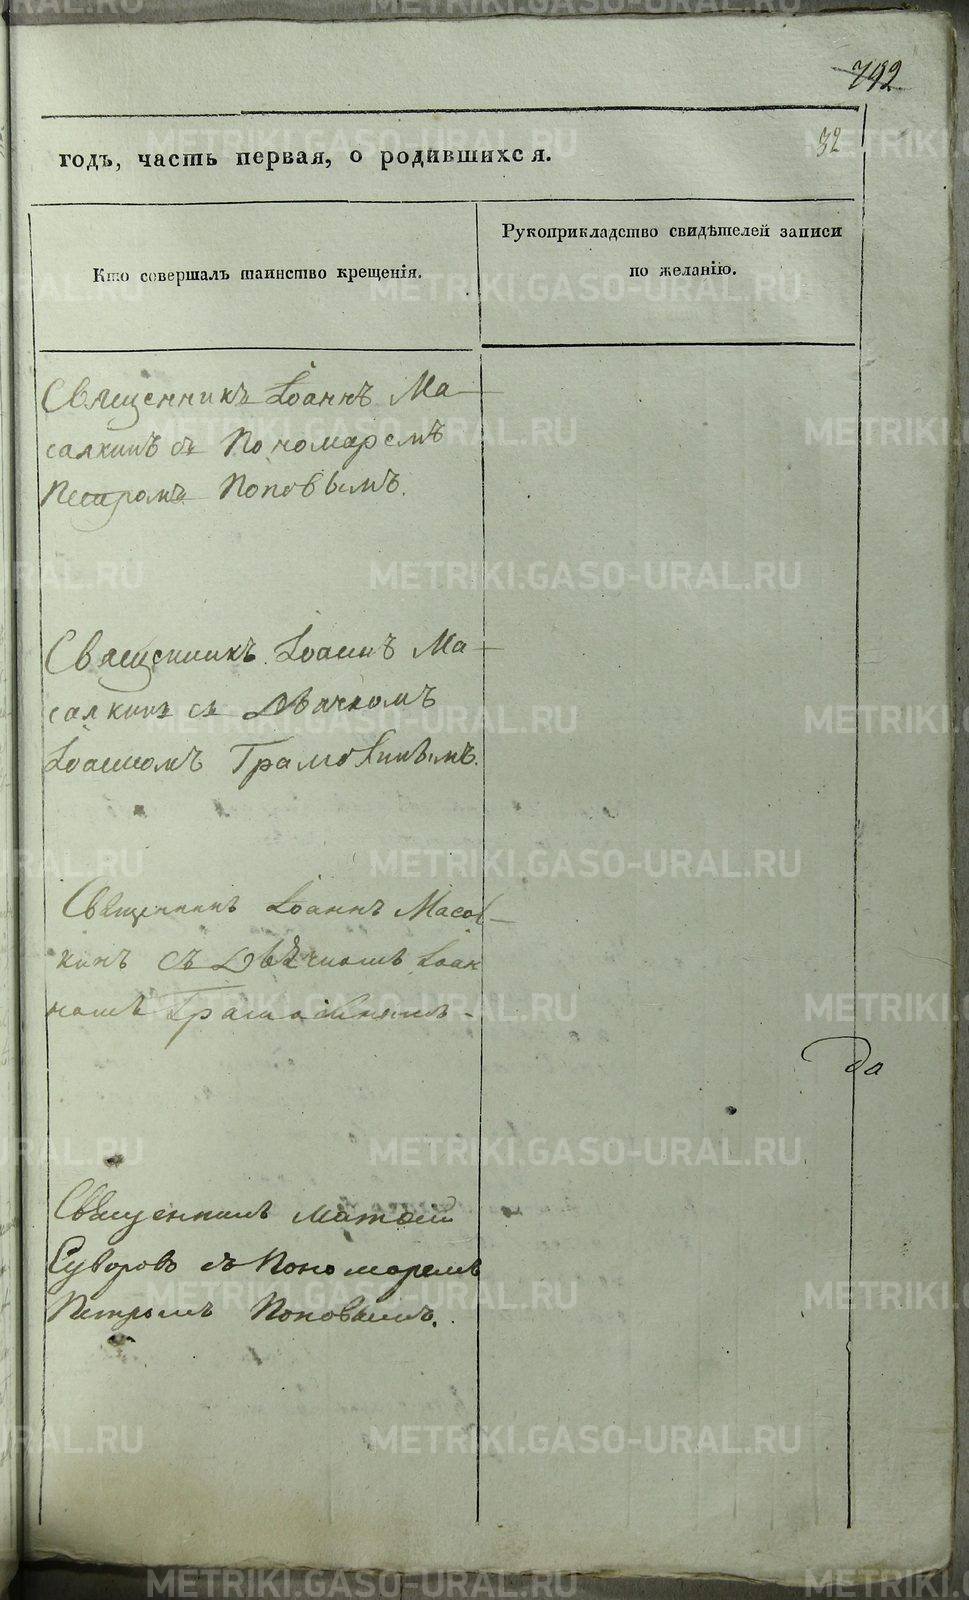 792
32
годъ, часть первая, о родившихся.
Кто совершалъ таинство крещенія.
Рукоприкладство свидѣтелей записи
по желанію.
Священникъ Іоаннъ Ма-
салкинъ съ Пономаремъ
Петромъ Поповымъ.
Священникъ Іоаннъ Ма-
салкинъ съ Дьячкомъ
Іоанномъ Грамолинымъ.
Священникъ Іоаннъ Масал-
кинъ съ Дьячкомъ Іоан
номъ
да
Священникъ Матѳій
Суворовъ съ Пономаремъ
Петромъ Поповымъ.
METRIKI.GASO-URAL.RU